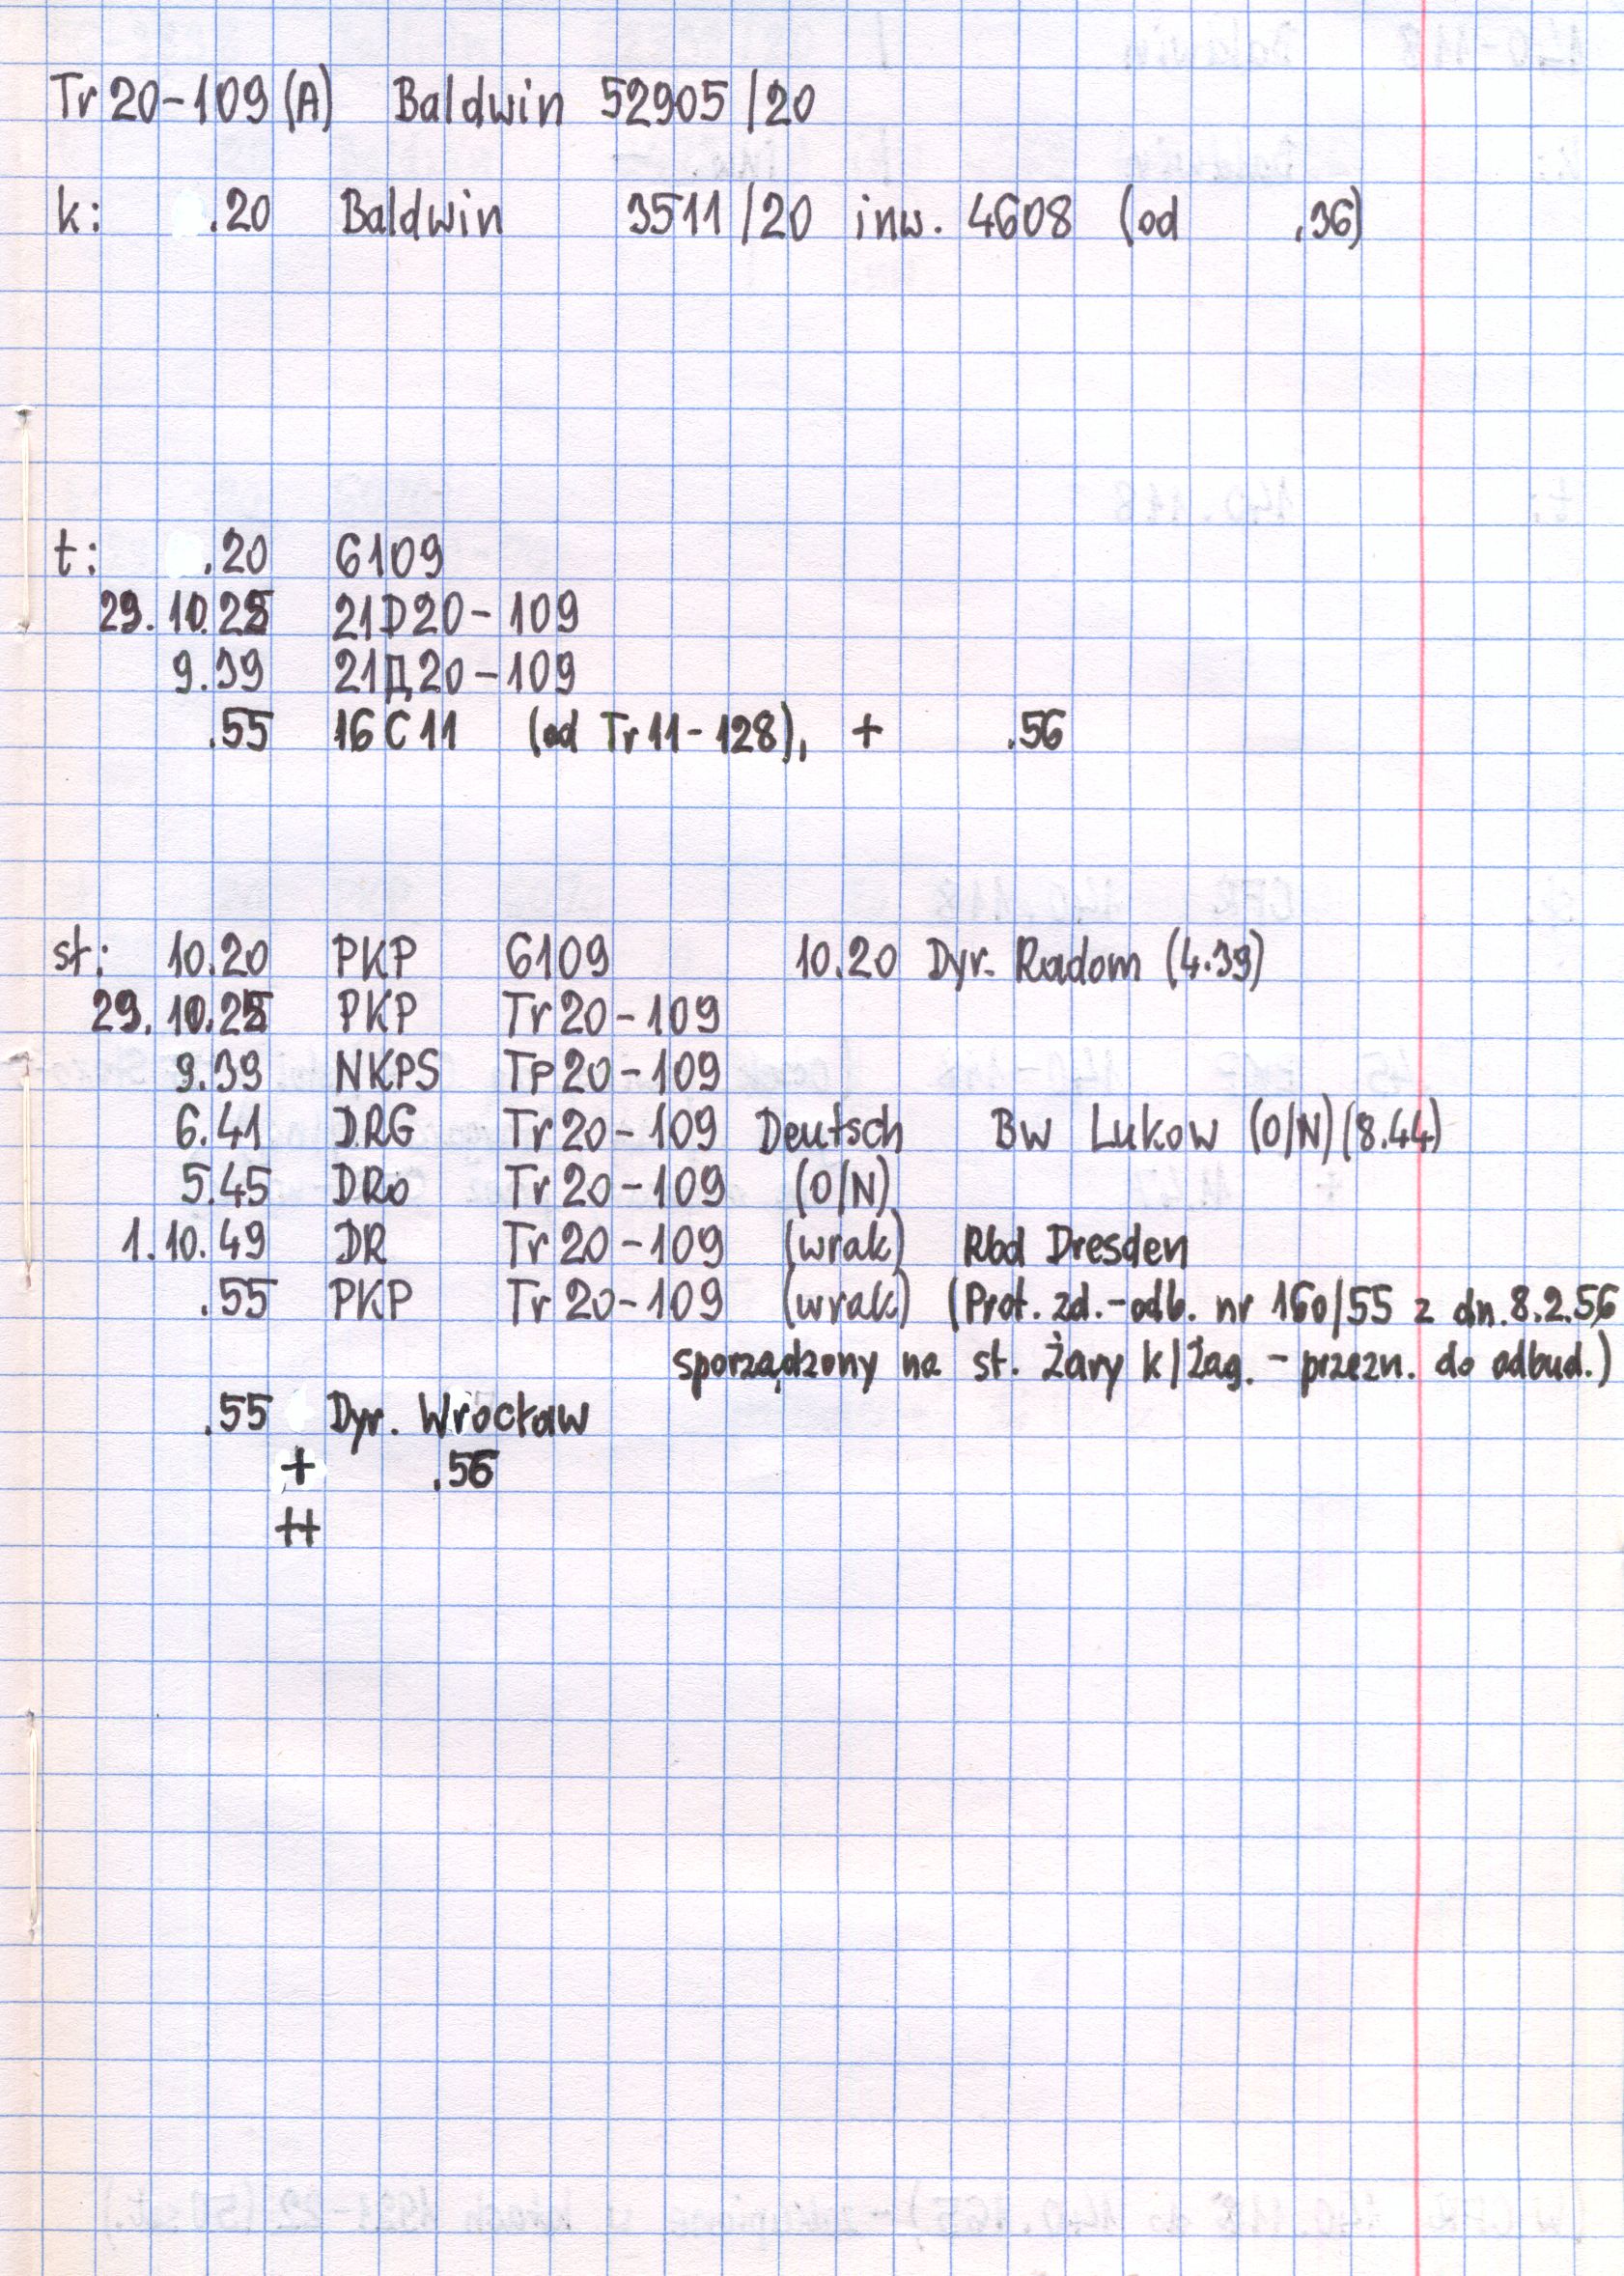 Tr 20-109 (A) Baldwin 52905/20
k: .20 Baldwin 3511/20 inw. 4608 (od .36)
t: .20 6109
29.10.25 21D20-109
9.39 21Д20-109
.55 16C11 (od Tr11-128), + .56
st: 10.20 PKP 6109 10.20 Dyr. Radom (4.39)
29.10.25 PKP Tr20-109
9.39 NKPS Tp20-109
6.41 DRG Tr20-109 Deutsch Bw Lukow (O/N) (8.44)
5.45 DRo Tr20-109 (O/N)
1.10.49 DR Tr20-109 (wrak) Rbd Dresden
.55 PKP Tr20-109 (wrak) (Prot. zd.-odb. nr 160/55 z dn. 8.2.56
sporządzony na st. Żary k/Żag. - przezn. do odbud.)
.55 Dyr. Wrocław
+ .56
++